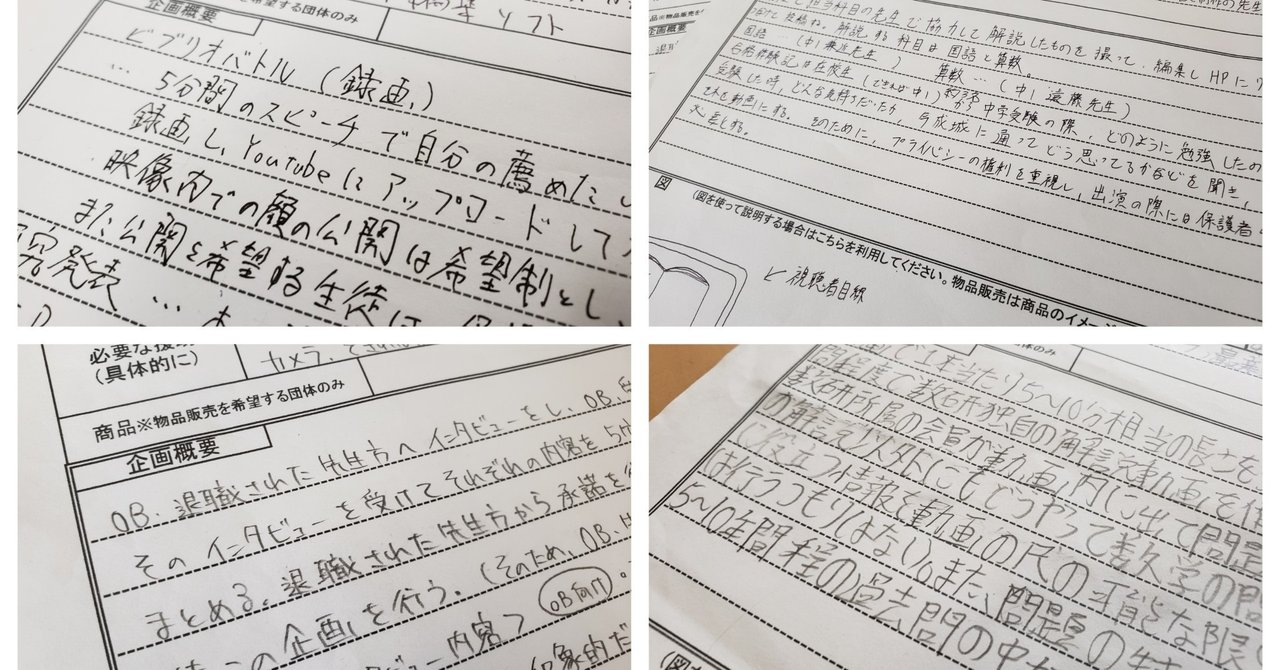 を希望する団体のみ
ソフト
企画概要
ビブリオバトル（録画）
… 5分間のスピーチで自分の薦めたし
録画し、YouTubeにアップロードして
映像内での顔の公開は希望制とし
また公開を希望する生徒は
究発表 …
企画概要
担当科目の先生で協力して解説したものを撮って、編集しHPに
解説する科目は国語と算数。
国語…（中1 先生） 算数…（中1 遠藤先生）
合格体験記は在校生（できれば中1）から中学受験の際、どのように勉強したの
受験した時、どんな気持ちだったか、今成城に通ってどう思ってるかなどを聞き、
それを動画にする。そのために、プライバシーの権利を重視し、出演の際には保護者
図
（図を使って説明する場合はこちらを利用してください。物品販売は商品のイメージ
↙ 視聴者目線
必要な
（具体的に）
カメラ、
商品※物品販売を希望する団体のみ
企画概要
OB、退職された先生方へインタビューをし、OB、
そのインタビューを受けてそれぞれの内容を5分
まとめる。退職された先生方から承諾を
この企画を行う。（そのため、OB、
内容つ OB向け
印象的だ
体のみ
で1本当たり5～10分相当の長さを
問程度で数研独自の解説動画を
数研所属の会員が動画内に出て問題
の解説以外にもどうやって数学の問
に役立つ情報を動画の尺の可能な限
は行うつもりはない)。また、問題の
5～10年間程の過去問の中